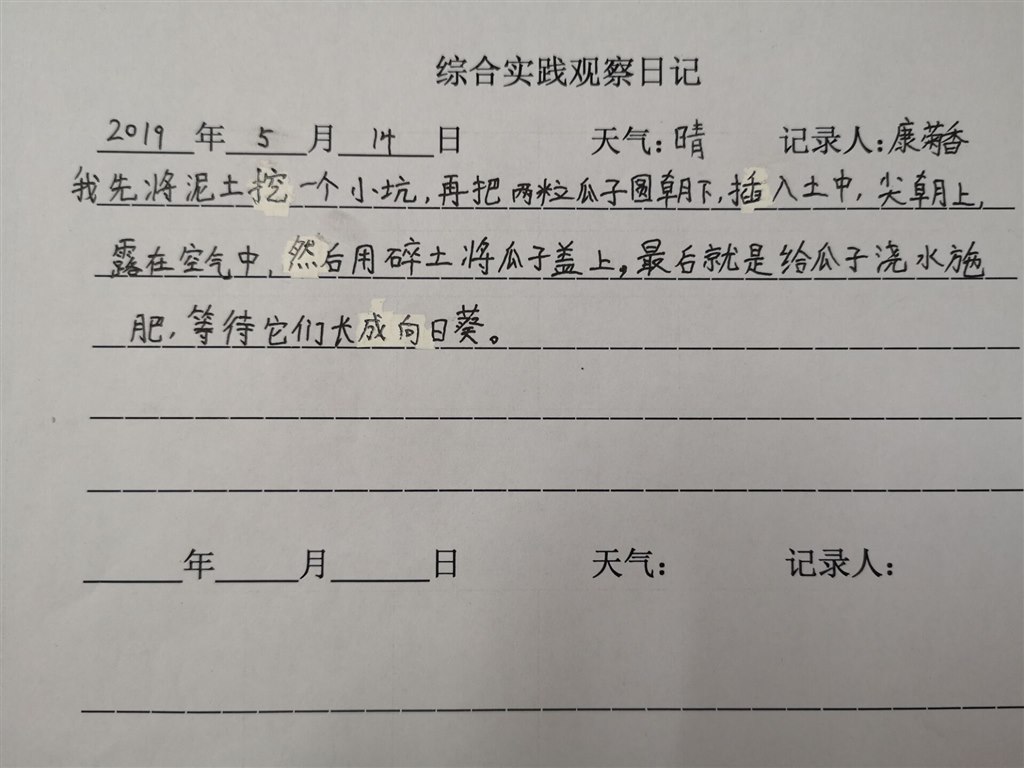 综合实践观察日记
2019年5月14日 天气:晴 记录人:康菊香
我先将泥土挖一个小坑,再把两粒瓜子圆朝下,插入土中,尖朝上,
露在空气中,然后用碎土将瓜子盖上。最后就是给瓜子浇水施
肥,等待它们长成向日葵。
____年____月____日 天气: 记录人: